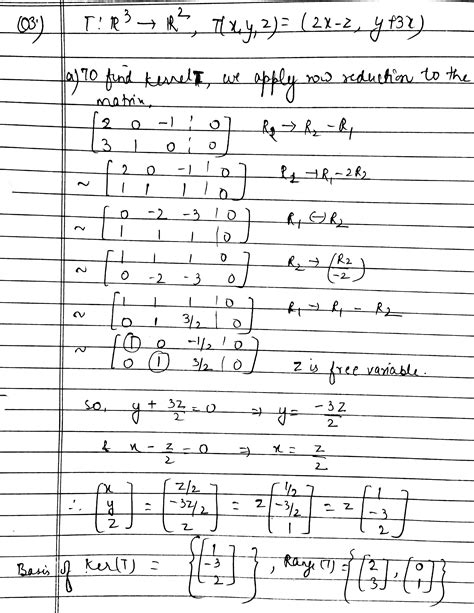 Q3.) T: ℝ³ → ℝ², T(x,y,z) = (2x-z, y+3x)
a) To find kernel T, we apply row reduction to the
matrix,
[2 0 -1 ¦ 0] R₂ → R₂ - R₁
[3 1 0 ¦ 0]
~ [2 0 -1 | 0] R₁ → R₁ - 2R₂
[1 1 1 | 0]
~ [0 -2 -3 | 0] R₁ ↔ R₂
[1 1 1 | 0]
~ [1 1 1 | 0] R₂ → (R₂/-2)
[0 -2 -3 | 0]
~ [1 1 1 | 0] R₁ → R₁ - R₂
[0 1 3/2 | 0]
~ [1 0 -1/2 | 0]
[0 1 3/2 | 0] z is free variable.
so, y + 3z/2 = 0 ⇒ y = -3z/2
& x - z/2 = 0 ⇒ x = z/2
∴ [x y z] = [z/2 -3z/2 z] = z [1/2 -3/2 1] = z [1 -3 2]
Basis of Ker(T) = {[1 -3 2]}, Range(T) = {[2 3], [0 1]}